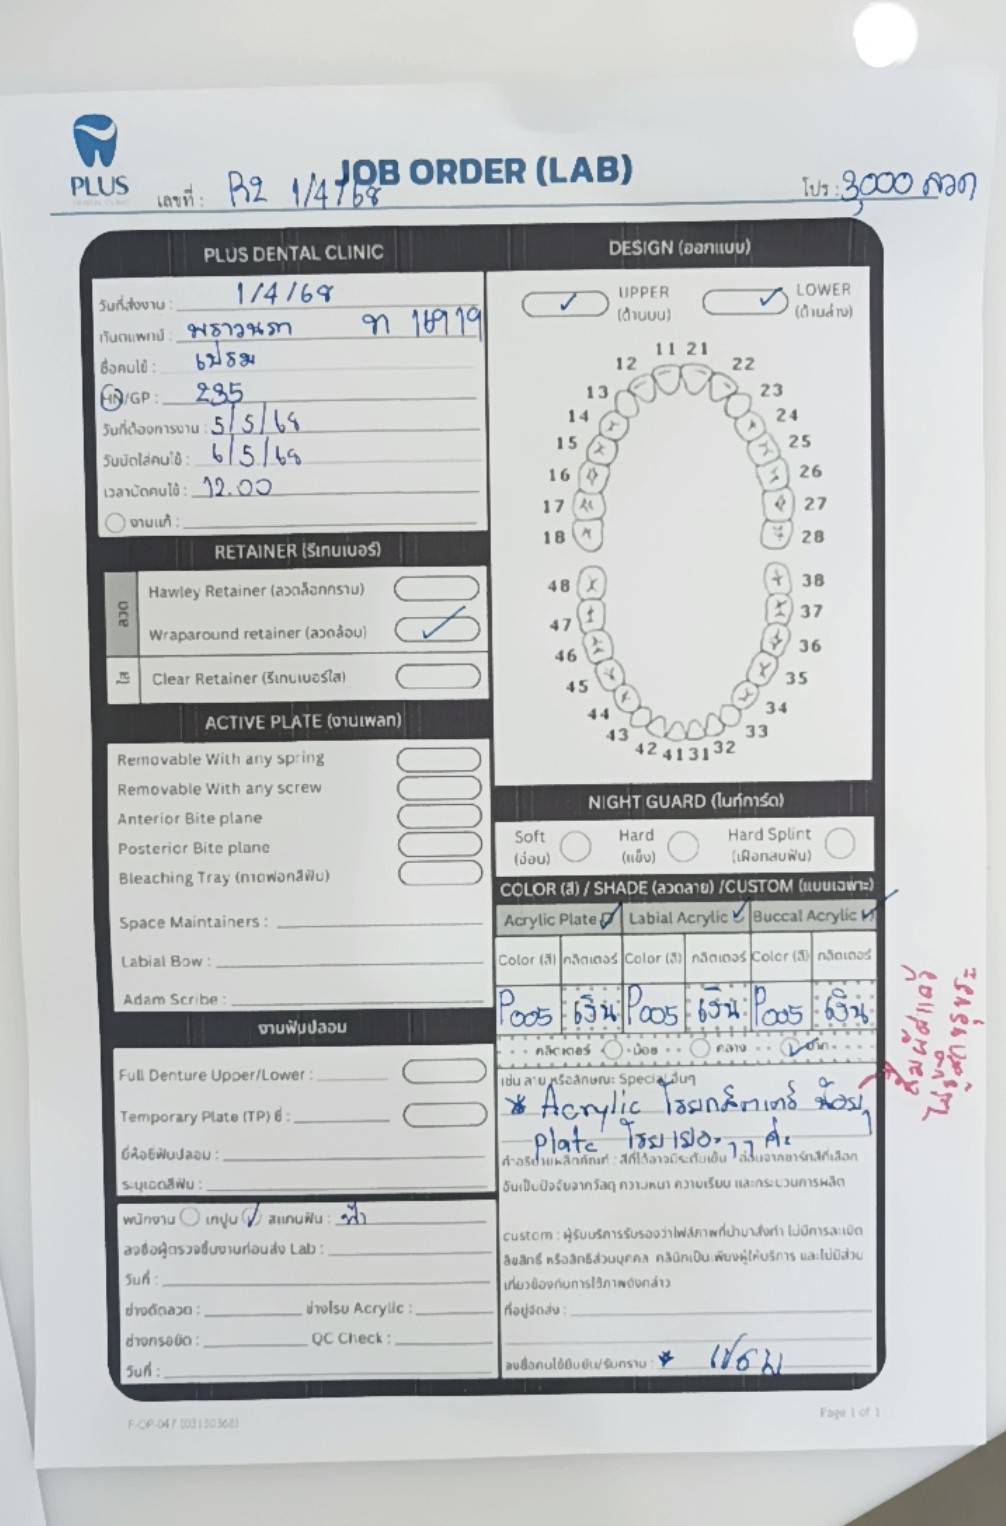 PLUS
DENTAL CLINIC
JOB ORDER (LAB)
เลขที่ : R2 1/4/68
โปร : 3,000 ลวด
PLUS DENTAL CLINIC
วันที่ส่งงาน : 1/4/68
ทันตแพทย์ : พราวนภา ท 16919
ชื่อคนไข้ : เปรม
HN/GP : 235
วันที่ต้องการงาน : 5/5/68
วันนัดใส่คนไข้ : 6/5/68
เวลานัดคนไข้ : 12.00
งานแก้ :
RETAINER (รีเทนเนอร์)
ลวด
Hawley Retainer (ลวดล็อกกราม)
Wraparound retainer (ลวดล้อม)
ใส
Clear Retainer (รีเทนเนอร์ใส)
ACTIVE PLATE (งานเพลท)
Removable With any spring
Removable With any screw
Anterior Bite plane
Posterior Bite plane
Bleaching Tray (ถาดฟอกสีฟัน)
Space Maintainers :
Labial Bow :
Adam Scribe :
งานฟันปลอม
Full Denture Upper/Lower :
Temporary Plate (TP) ซี่ :
ยี่ห้อซี่ฟันปลอม :
ระบุเฉดสีฟัน :
พนักงาน เทปูน สแกนฟัน : ฟ้า
ลงชื่อผู้ตรวจรับงานก่อนส่ง Lab :
วันที่ :
ช่างดัดลวด : ช่างโรย Acrylic :
ช่างกรอขัด : QC Check :
วันที่ :
DESIGN (ออกแบบ)
UPPER
(ด้านบน)
LOWER
(ด้านล่าง)
11 21
12 22
13 23
14 24
15 25
16 26
17 27
18 28
48 38
47 37
46 36
45 35
44 34
43 33
42 41 31 32
NIGHT GUARD (ไนท์การ์ด)
Soft
(อ่อน)
Hard
(แข็ง)
Hard Splint
(เฝือกสบฟัน)
COLOR (สี) / SHADE (ลวดลาย) /CUSTOM (แบบเฉพาะ)
Acrylic Plate Labial Acrylic Buccal Acrylic
Color (สี) กลิตเตอร์ Color (สี) กลิตเตอร์ Color (สี) กลิตเตอร์
P005 เงิน P005 เงิน P005 เงิน
กลิตเตอร์ น้อย กลาง มาก
เช่น ลาย หรือลักษณะ Special อื่นๆ
* Acrylic โรยกลิตเตอร์ น้อยๆ
Plate โรยเยอะๆๆ ค่ะ
คำอธิบายผลิตภัณฑ์ : สีที่ได้อาจมีระดับเข้ม / อ่อนจากชาร์ทสีที่เลือก
อันเป็นปัจจัยจากวัสดุ ความหนา ความเรียบ และกระบวนการผลิต
custom : ผู้รับบริการรับรองว่าไฟล์ภาพที่นำมาสั่งทำ ไม่มีการละเมิด
ลิขสิทธิ์ หรือสิทธิส่วนบุคคล คลินิกเป็นเพียงผู้ให้บริการ และไม่มีส่วน
เกี่ยวข้องกับการใช้ภาพดังกล่าว
ที่อยู่จัดส่ง :
ลงชื่อคนไข้ยืนยัน/รับทราบ : * เปรม
สัมผัสแล้ว
ไม่รู้สึกขรุขระ
F-OP-047 (03130368)
Page 1 of 1